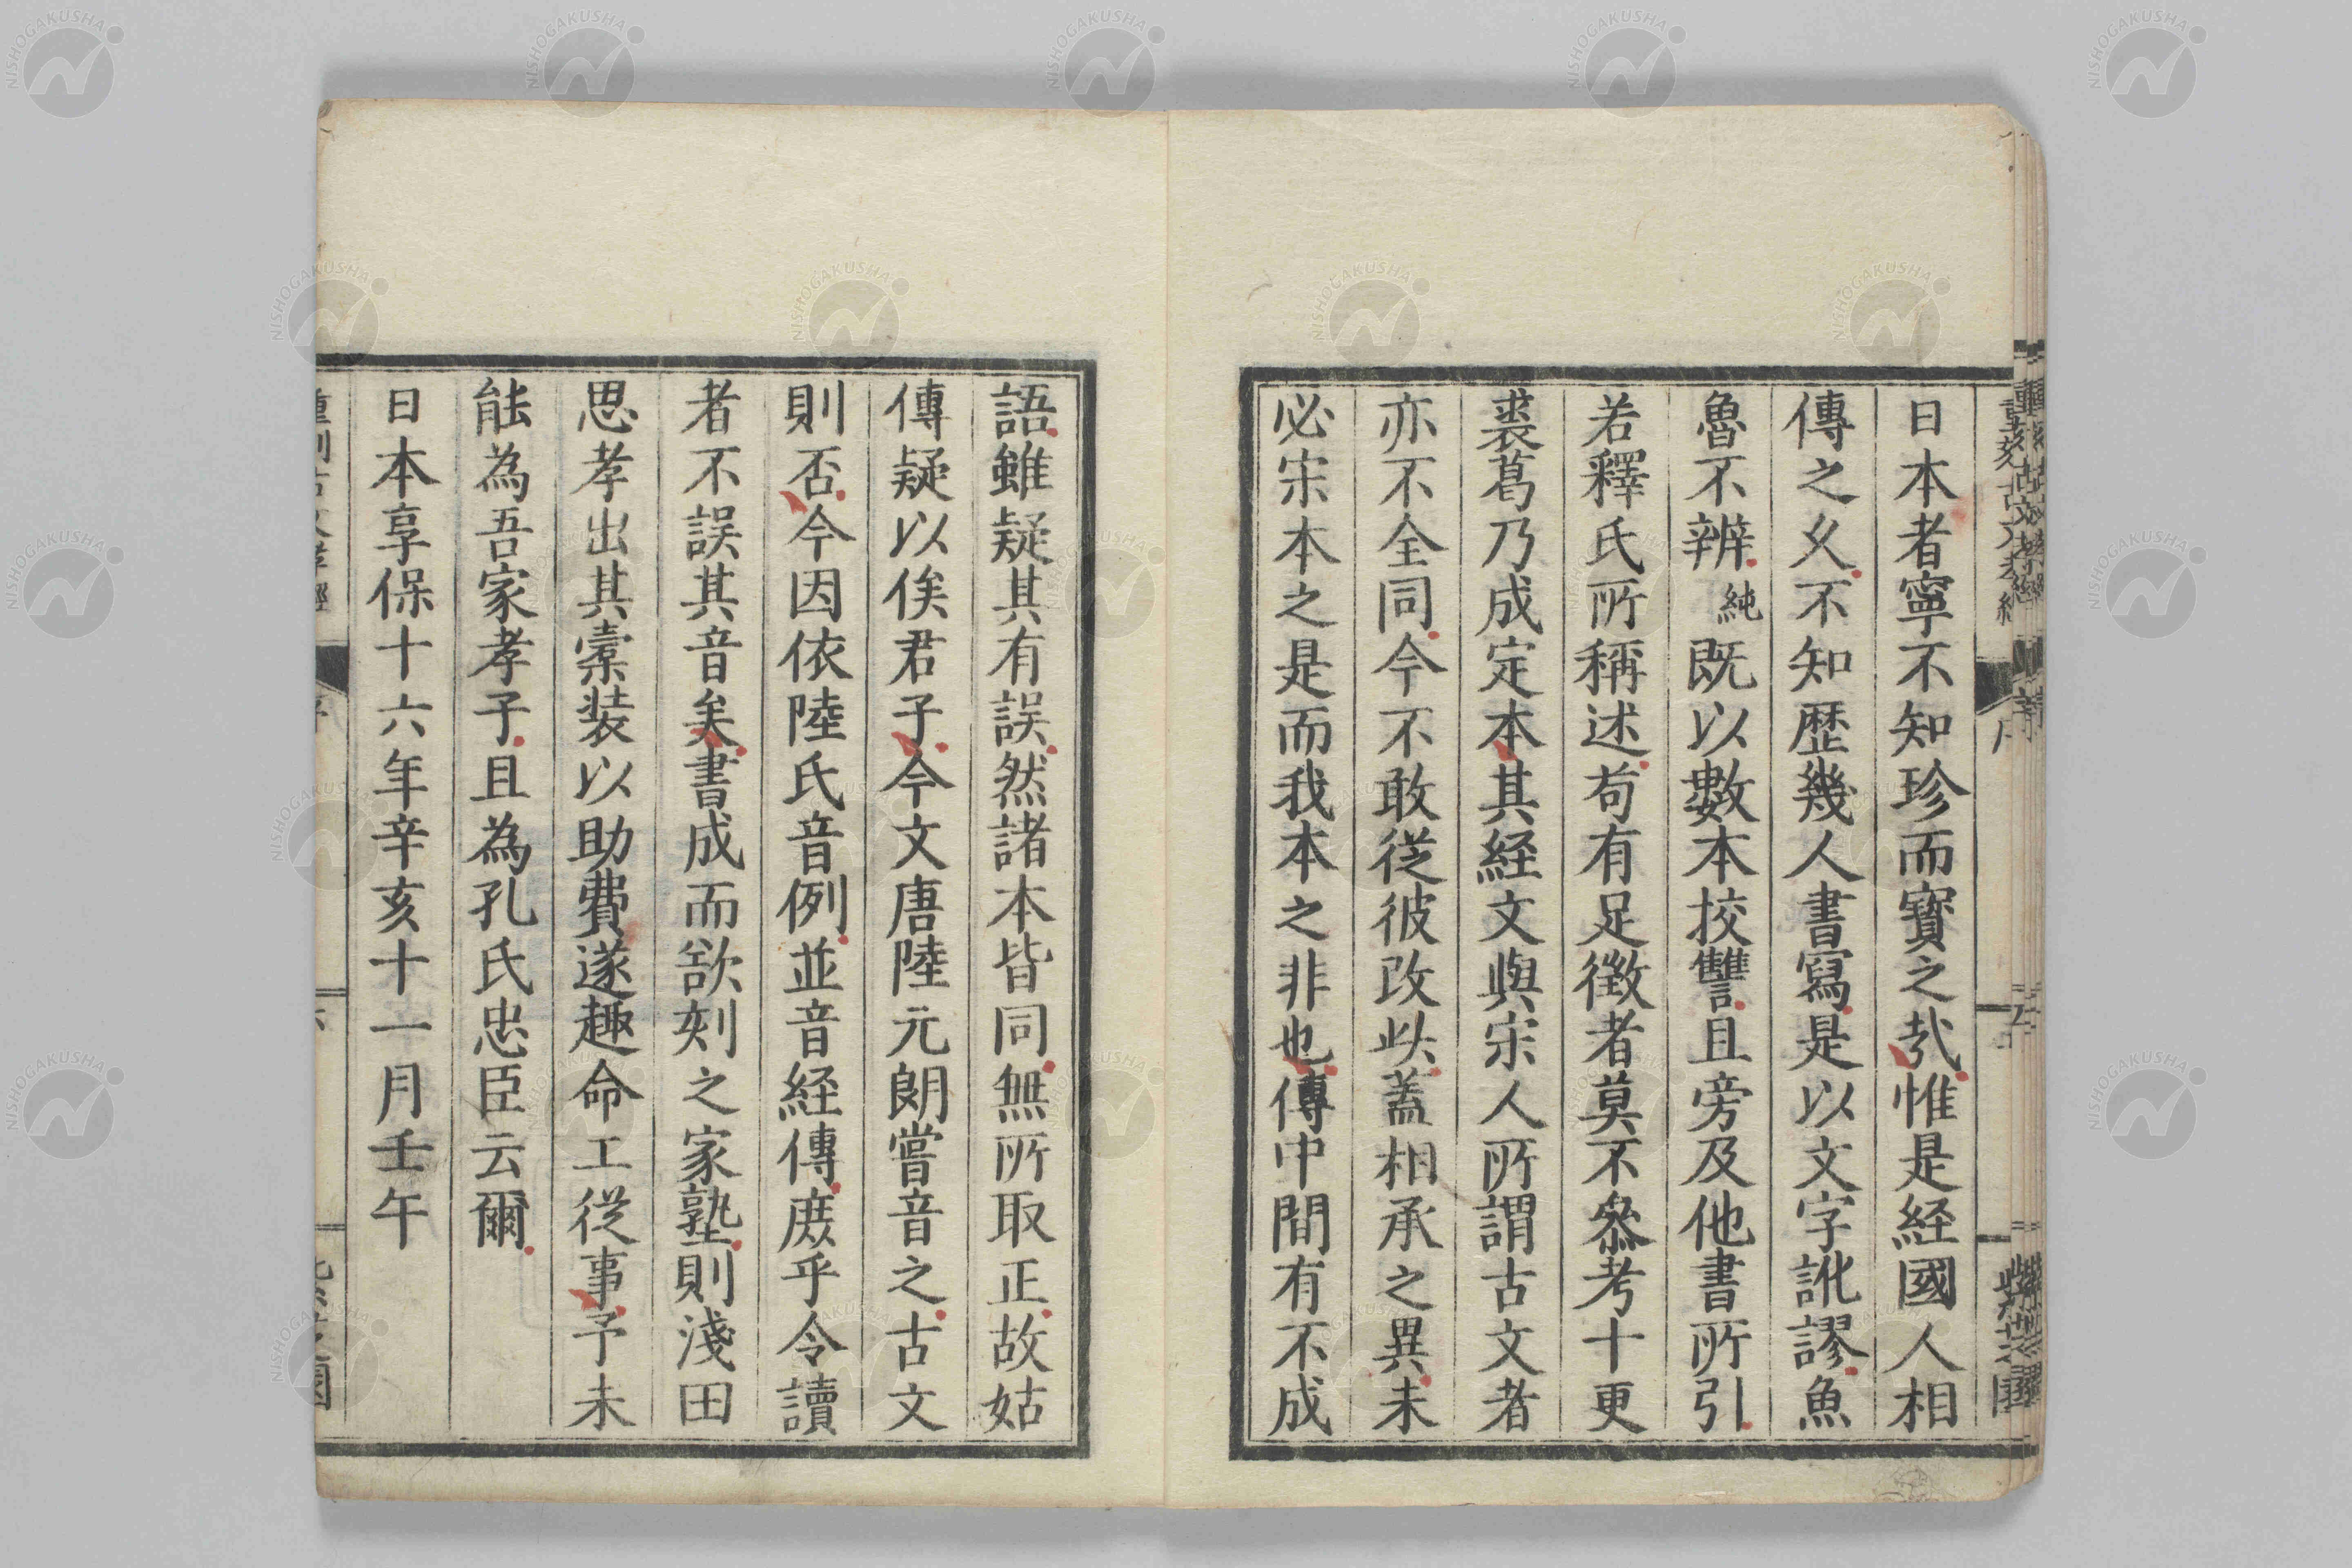 日本者寧不知珍而寶之㦲惟是経國人相
傳之久不知歴幾人書寫是以文字訛謬魚
魯不辨純既以數本挍讐且旁及他書所引
若釋氏所稱述苟有足徴者莫不叅考十更
裘葛乃成定本其経文與宋人所謂古文者
亦不全同今不敢従彼改此蓋相承之異未
必宋本之是而我本之非也傳中間有不成
語雖疑其有誤然諸本皆同無所取正故姑
傳疑以俟君子今文唐陸元朗嘗音之古文
則否今因依陸氏音例並音経傳庻乎令讀
者不誤其音矣書成而欲刻之家塾則淺田
思孝出其橐装以助費遂趣命工従事予未
能為吾家孝子且為孔氏忠臣云爾
日本享保十六年辛亥十一月壬午
NISHOGAKUSHA